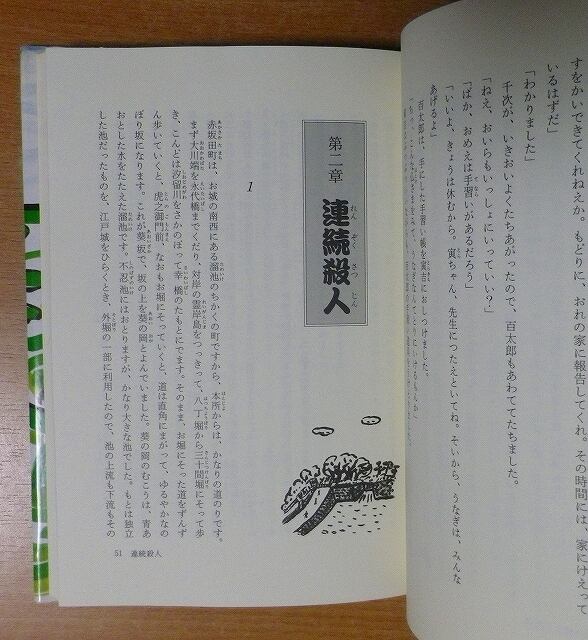 すをかいでてくれねえか。もどりに、おれの家に報告してくれ。その時間にゃ、家にけえって
いるはずだ」
「わかりました」
千次が、いきおいよくたちあがったので、百太郎もあわててたちました。
「ねえ、おいらもいっしょにいっていい？」
「ばか、おめえは手習いがあるだろう」
「いいよ、きょうは休むから。寅ちゃん、先生につたえといてね。そいから、うなぎは、みんな
あげるよ」
百太郎は、手にした手習い帳を寅吉におしつけました。
第二章 連続殺人
れん ぞく さつ じん
1
赤坂田町は、お城の南西にある溜池のちかくの町ですから、本所からは、かなりの道のりです。
まず大川端を永代橋までくだり、対岸の霊岸島をつっきって、八丁堀から三十間堀にそって歩
き、こんどは汐留川をさかのぼって幸橋のたもとにでます。そのまま、お堀にそった道をずんず
ん歩いていくと、虎之御門前、なおもお堀にそっていくと、道は直角にまがって、ゆるやかなの
ぼり坂になります。これが葵坂で、坂の上を葵の岡とよんでいました。葵の岡のむこうは、青あ
おとした水をたたえた溜池です。不忍池にはおとりますが、かなり大きな池でした。もとは独立
した池だったものを、江戸城をひらくとき、外堀の一部に利用したので、池の上流も下流もその
51 連続殺人